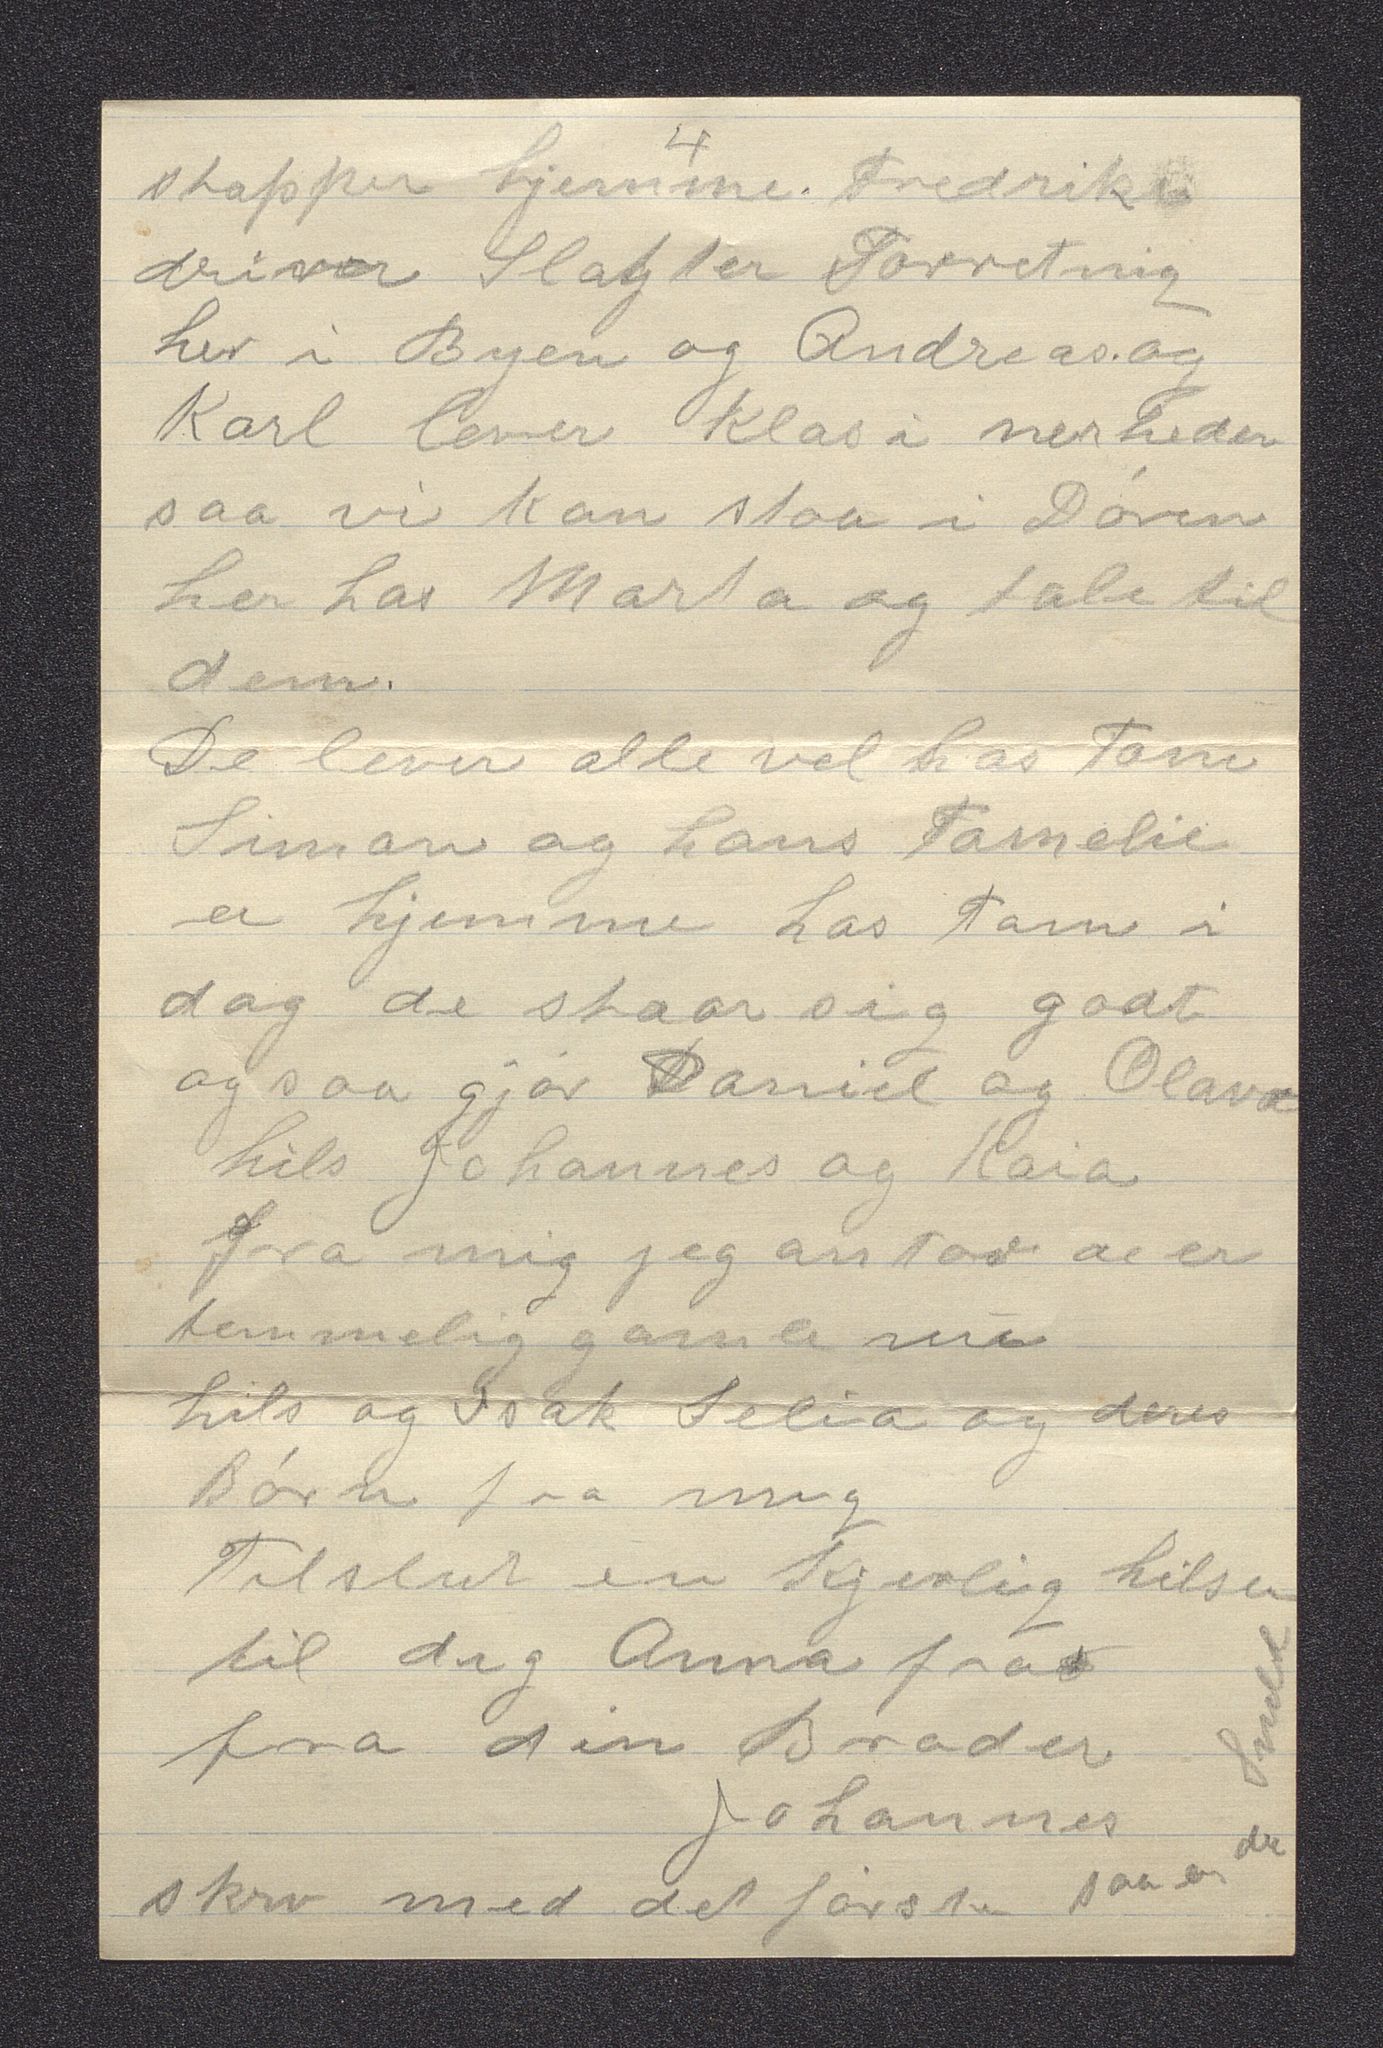 4
stopper hjemme. Fredrik
driver Slagter Forretnig
her i Byen og Andreas. og
Karl lever Klos i nerheden
saa vi kan staa i Dóren
her hos Marta og tale til
dem.
De lever alle vel hos Tom
Simon og hans Famelie
er hjemme hos Tom i
dag de staar sig godt
og saa gjór Daniel og Olava
hils Johannes og Kaia
fra mig jeg antar de er
temmelig gamle nu
hils og Isak Selia og deres
Bórn fra mig
Tilslut en Kjerlig hilsen
til dig Anna fra
fra din Broder
Johannes
skriv med det fórste saa er du Snild